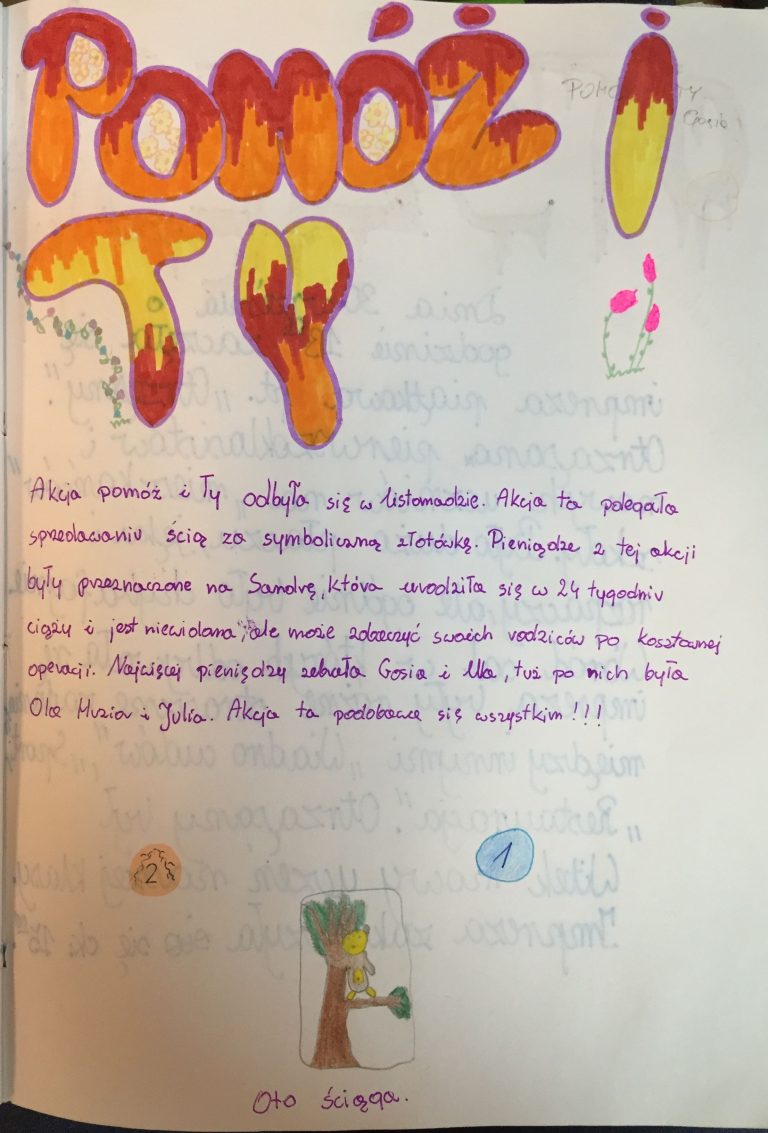 POMÓŻ I
TY
Akcja pomóż i Ty odbyła się w listopadzie. Akcja ta polegała
sprzedawaniu ściąg za symboliczną złotówkę. Pieniądze z tej akcji
były przeznaczone na Sandrę, która urodziła się w 24 tygodniu
ciąży i jest niewidoma, ale może zobaczyć swoich rodziców po kosztownej
operacji. Najwięcej pieniędzy zebrała Gosia i , tuż po nich była
Ola i Julia. Akcja ta podobała się wszystkim!!!
2
1
Oto ściąga.